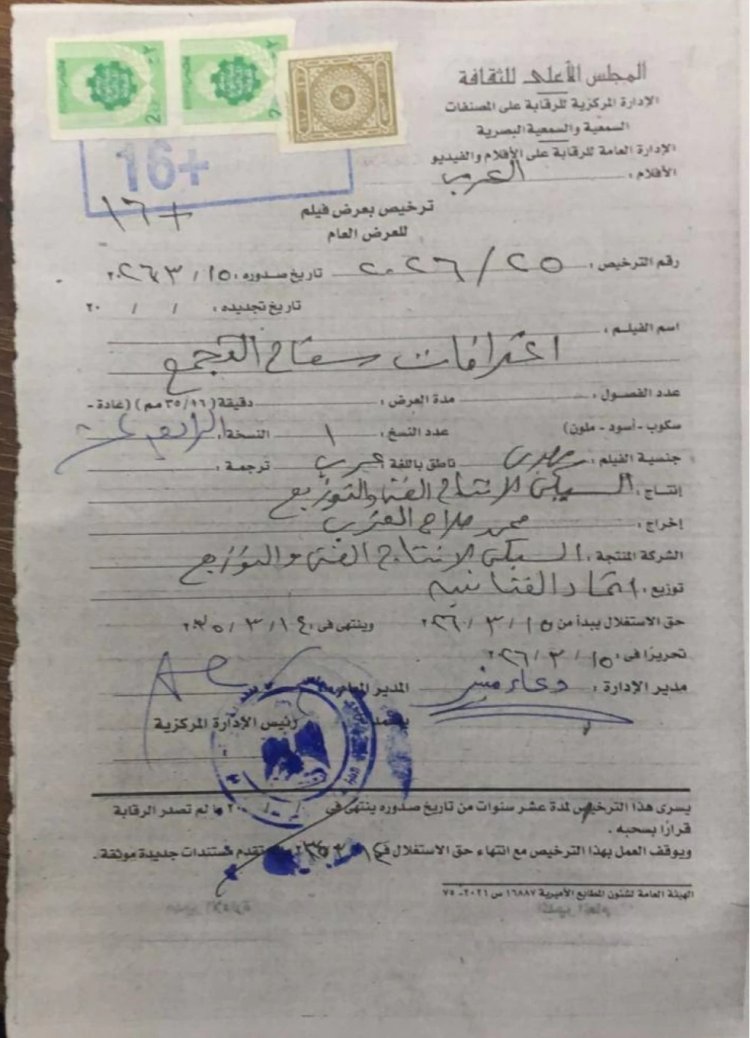 المجلس الأعلى للثقافة
الإدارة المركزية للرقابة على المصنفات
السمعية والسمعية البصرية
الإدارة العامة للرقابة على الأفلام والفيديو
الأفلام : العرب
16+
+١٦
ترخيص بعرض فيلم
للعرض العام
رقم الترخيص : ٢٠٢٦/٢٥ تاريخ صدوره : ٢٠٢٦/٣/١٥
تاريخ تجديده : / / ٢٠
اسم الفيلم :
اعترافات سفاح التجمع
عدد الفصول : مدة العرض : دقيقة (٣٥/١٦ مم) (عادة -
سكوب - أسود - ملون) عدد النسخ : ١ النسخة :
جنسية الفيلم : مصرى ناطق باللغة : عربى ترجمة :
إنتاج : السبكى للإنتاج الفنى والتوزيع
إخراج : محمد صلاح العزب
الشركة المنتجة : السبكى للإنتاج الفنى والتوزيع
توزيع : اتحاد الفنانين
حق الاستغلال يبدأ من ٢٠٢٦/٣/١٥ وينتهى فى : ١٤ / ٣ /
تحريرًا فى : ٢٠٢٦/٣/١٥
مدير الإدارة : دعاء منير المدير العام :
يعتمد، رئيس الإدارة المركزية
يسرى هذا الترخيص لمدة عشر سنوات من تاريخ صدوره ينتهى فى ما لم تصدر الرقابة
قرارًا بسحبه .
ويوقف العمل بهذا الترخيص مع انتهاء حق الاستغلال فى تقدم مستندات جديدة موثقة .
الهيئة العامة لشئون المطابع الأميرية ١٦٨٨٧ س ٢٠٢١ - ٧٥